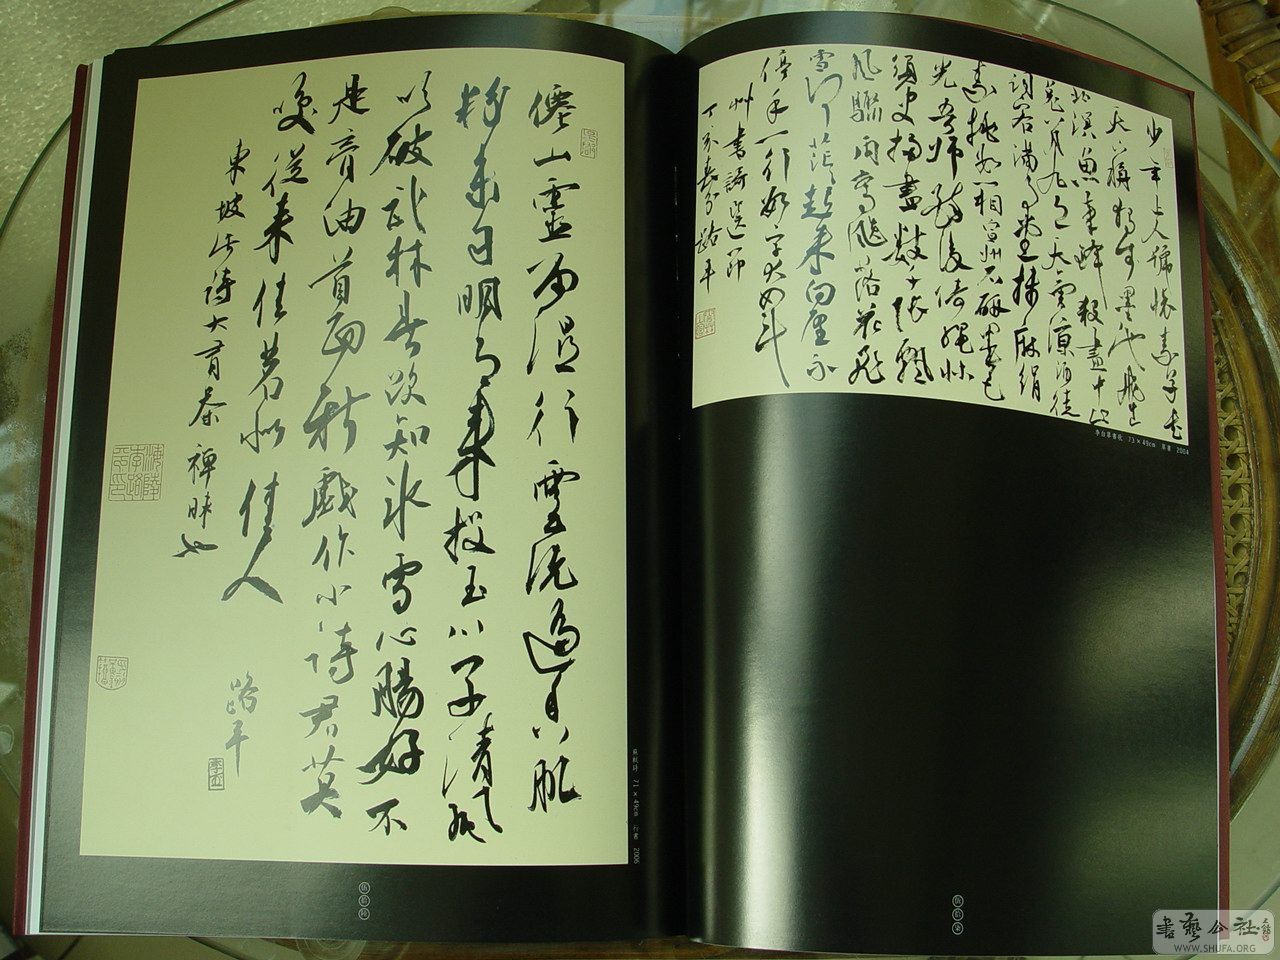 僊山靈雨濕行雲洗遍香肌
粉未匀明月来投玉川子清風
吹破武林春欲知冰雪心腸好不
是膏油首面新戲作小詩君莫
笑從来佳茗似佳人
東坡此詩大有茶禪味也
路平
蘇軾詩 71×49cm 行書 2006
伍拾陸
少年上人號懷素草書
天下稱獨步墨池飛出
北溟魚筆鋒殺盡中山
兔八月九月天氣涼酒徒
詞客滿高堂牋麻絹
素排數箱宣州石硯墨色
光吾師醉後倚繩牀
須臾掃盡數千張飄
風驟雨驚颯颯落花飛
雪何茫茫起来向壁不
停手一行數字大如斗
草書詩選一節
丁亥春分路平
李白草書歌 73×49cm 草書 2004
伍拾柒
書藝公社
WWW.SHUFA.ORG